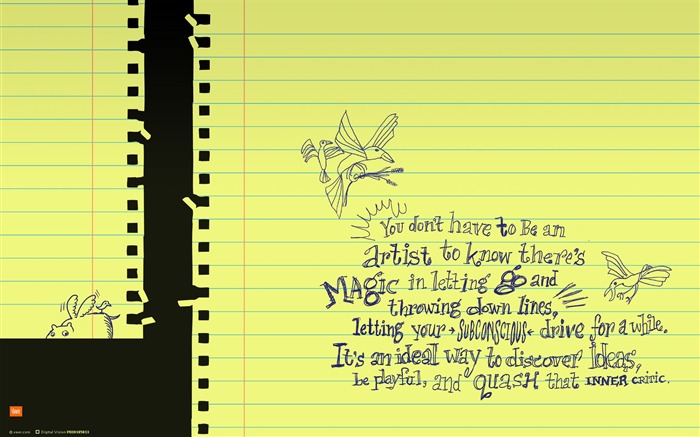 You don't have to Be an
artist to know there's
MAgic in letting go and
throwing down lines,
letting your SUBCONSCIOUS drive for a while.
It's an ideal way to discover Ideas,
be playful, and QUASH that INNER CRITIC.
veer.com Digital Vision